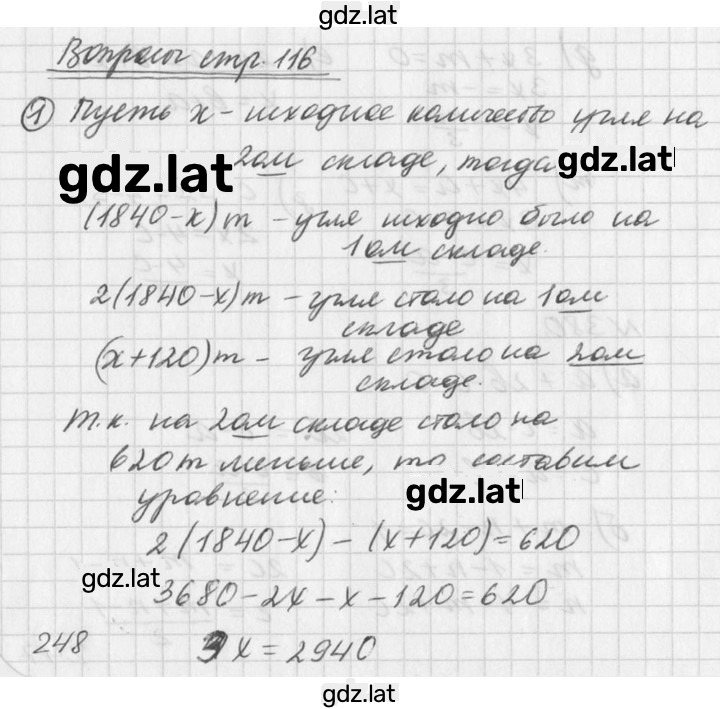 gdz.lat
Вопросы стр. 116
① Пусть x - исходное количество угля на
2ом складе, тогда
gdz.lat
gdz.lat
(1840-x)т - угля исходно было на
1ом складе.
2(1840-x)т - угля стало на 1ом
складе
(x+120)т - угля стало на 2ом
складе.
Т.к. на 2ом складе стало на
620т меньше, то составим
уравнение:
gdz.lat
2(1840-x) - (x+120)=620
gdz.lat
3680-2x-x-120=620
248
3x=2940
gdz.lat